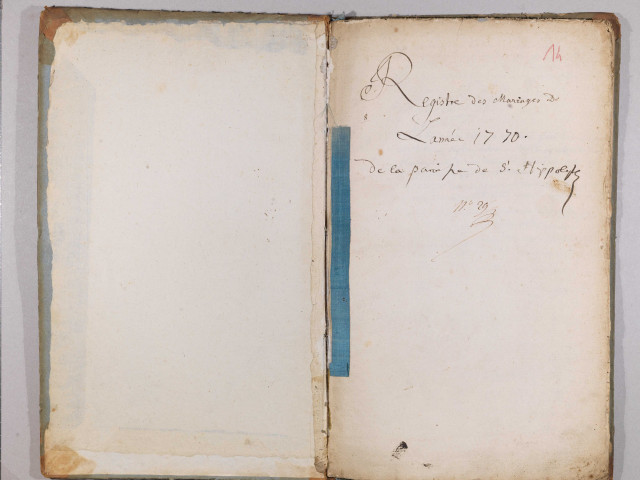 14
Registre des Mariages De
L'année 1770.
de la paroisse de St Hippolyte